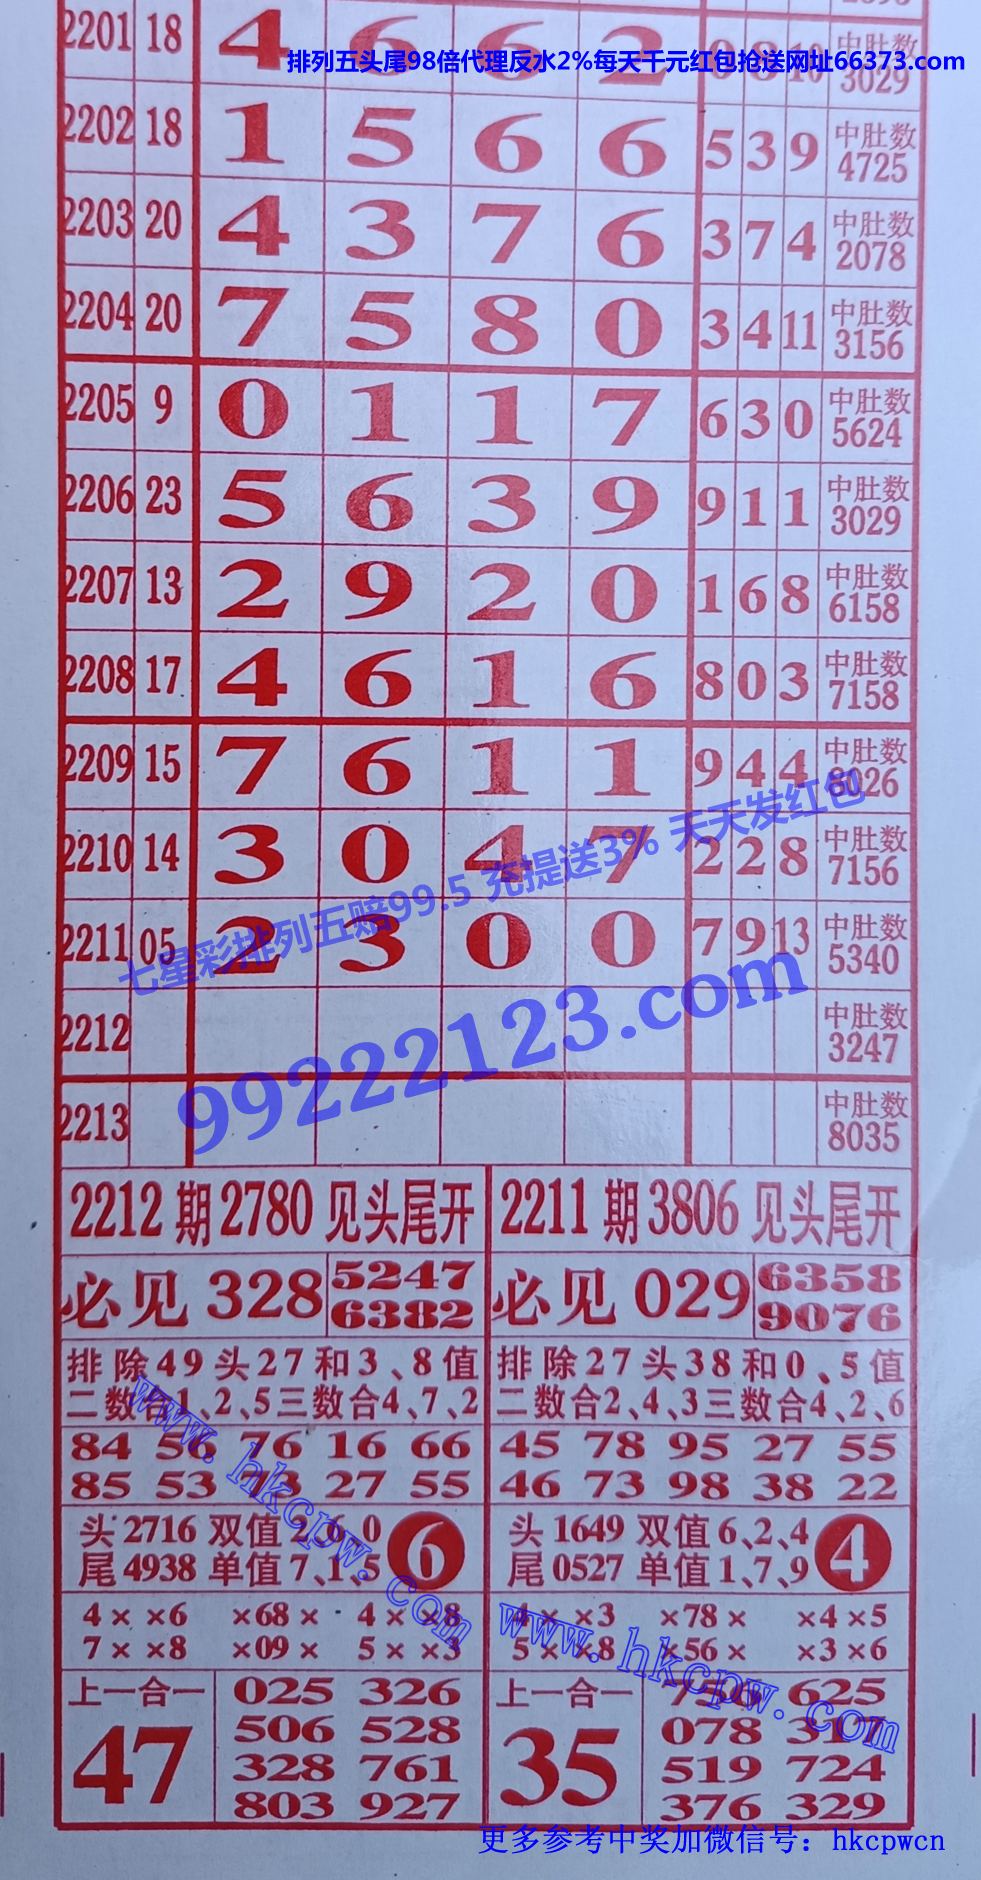 排列五头尾98倍代理反水2%每天千元红包抢送网址66373.com
2201 18 4 6 6 2 9 8 10 中肚数 3029
2202 18 1 5 6 6 5 3 9 中肚数 4725
2203 20 4 3 7 6 3 7 4 中肚数 2078
2204 20 7 5 8 0 3 4 11 中肚数 3156
2205 9 0 1 1 7 6 3 0 中肚数 5624
2206 23 5 6 3 9 9 1 1 中肚数 3029
2207 13 2 9 2 0 1 6 8 中肚数 6158
2208 17 4 6 1 6 8 0 3 中肚数 7158
2209 15 7 6 1 1 9 4 4 中肚数 026
2210 14 3 0 4 7 2 2 8 中肚数 7156
2211 05 2 3 0 0 7 9 13 中肚数 5340
七星彩排列五赔99.5 充提送3% 天天发红包
99222123.com
2212 中肚数 3247
2213 中肚数 8035
2212期2780见头尾开
必见328 5247
6382
排除49头27和3、8值
二数合1、2、5三数合4、7、2
84 56 76 16 66
85 53 73 27 55
头2716 双值2、6、0
尾4938 单值7、1、5
6
4××6 ×68× 4××8
7××8 ×09× 5××3
上一合一
47
025 326
506 528
328 761
803 927
2211期3806见头尾开
必见029 6358
9076
排除27头38和0、5值
二数合2、4、3三数合4、2、6
45 78 95 27 55
46 73 98 38 22
头1649 双值6、2、4
尾0527 单值1、7、9
4
4××3 ×78× ×4×5
5××8 ×56× ×3×6
上一合一
35
625
078 317
519 724
376 329
www.hkcpw.com
www.hkcpw.com
更多参考中奖加微信号：hkcpwcn